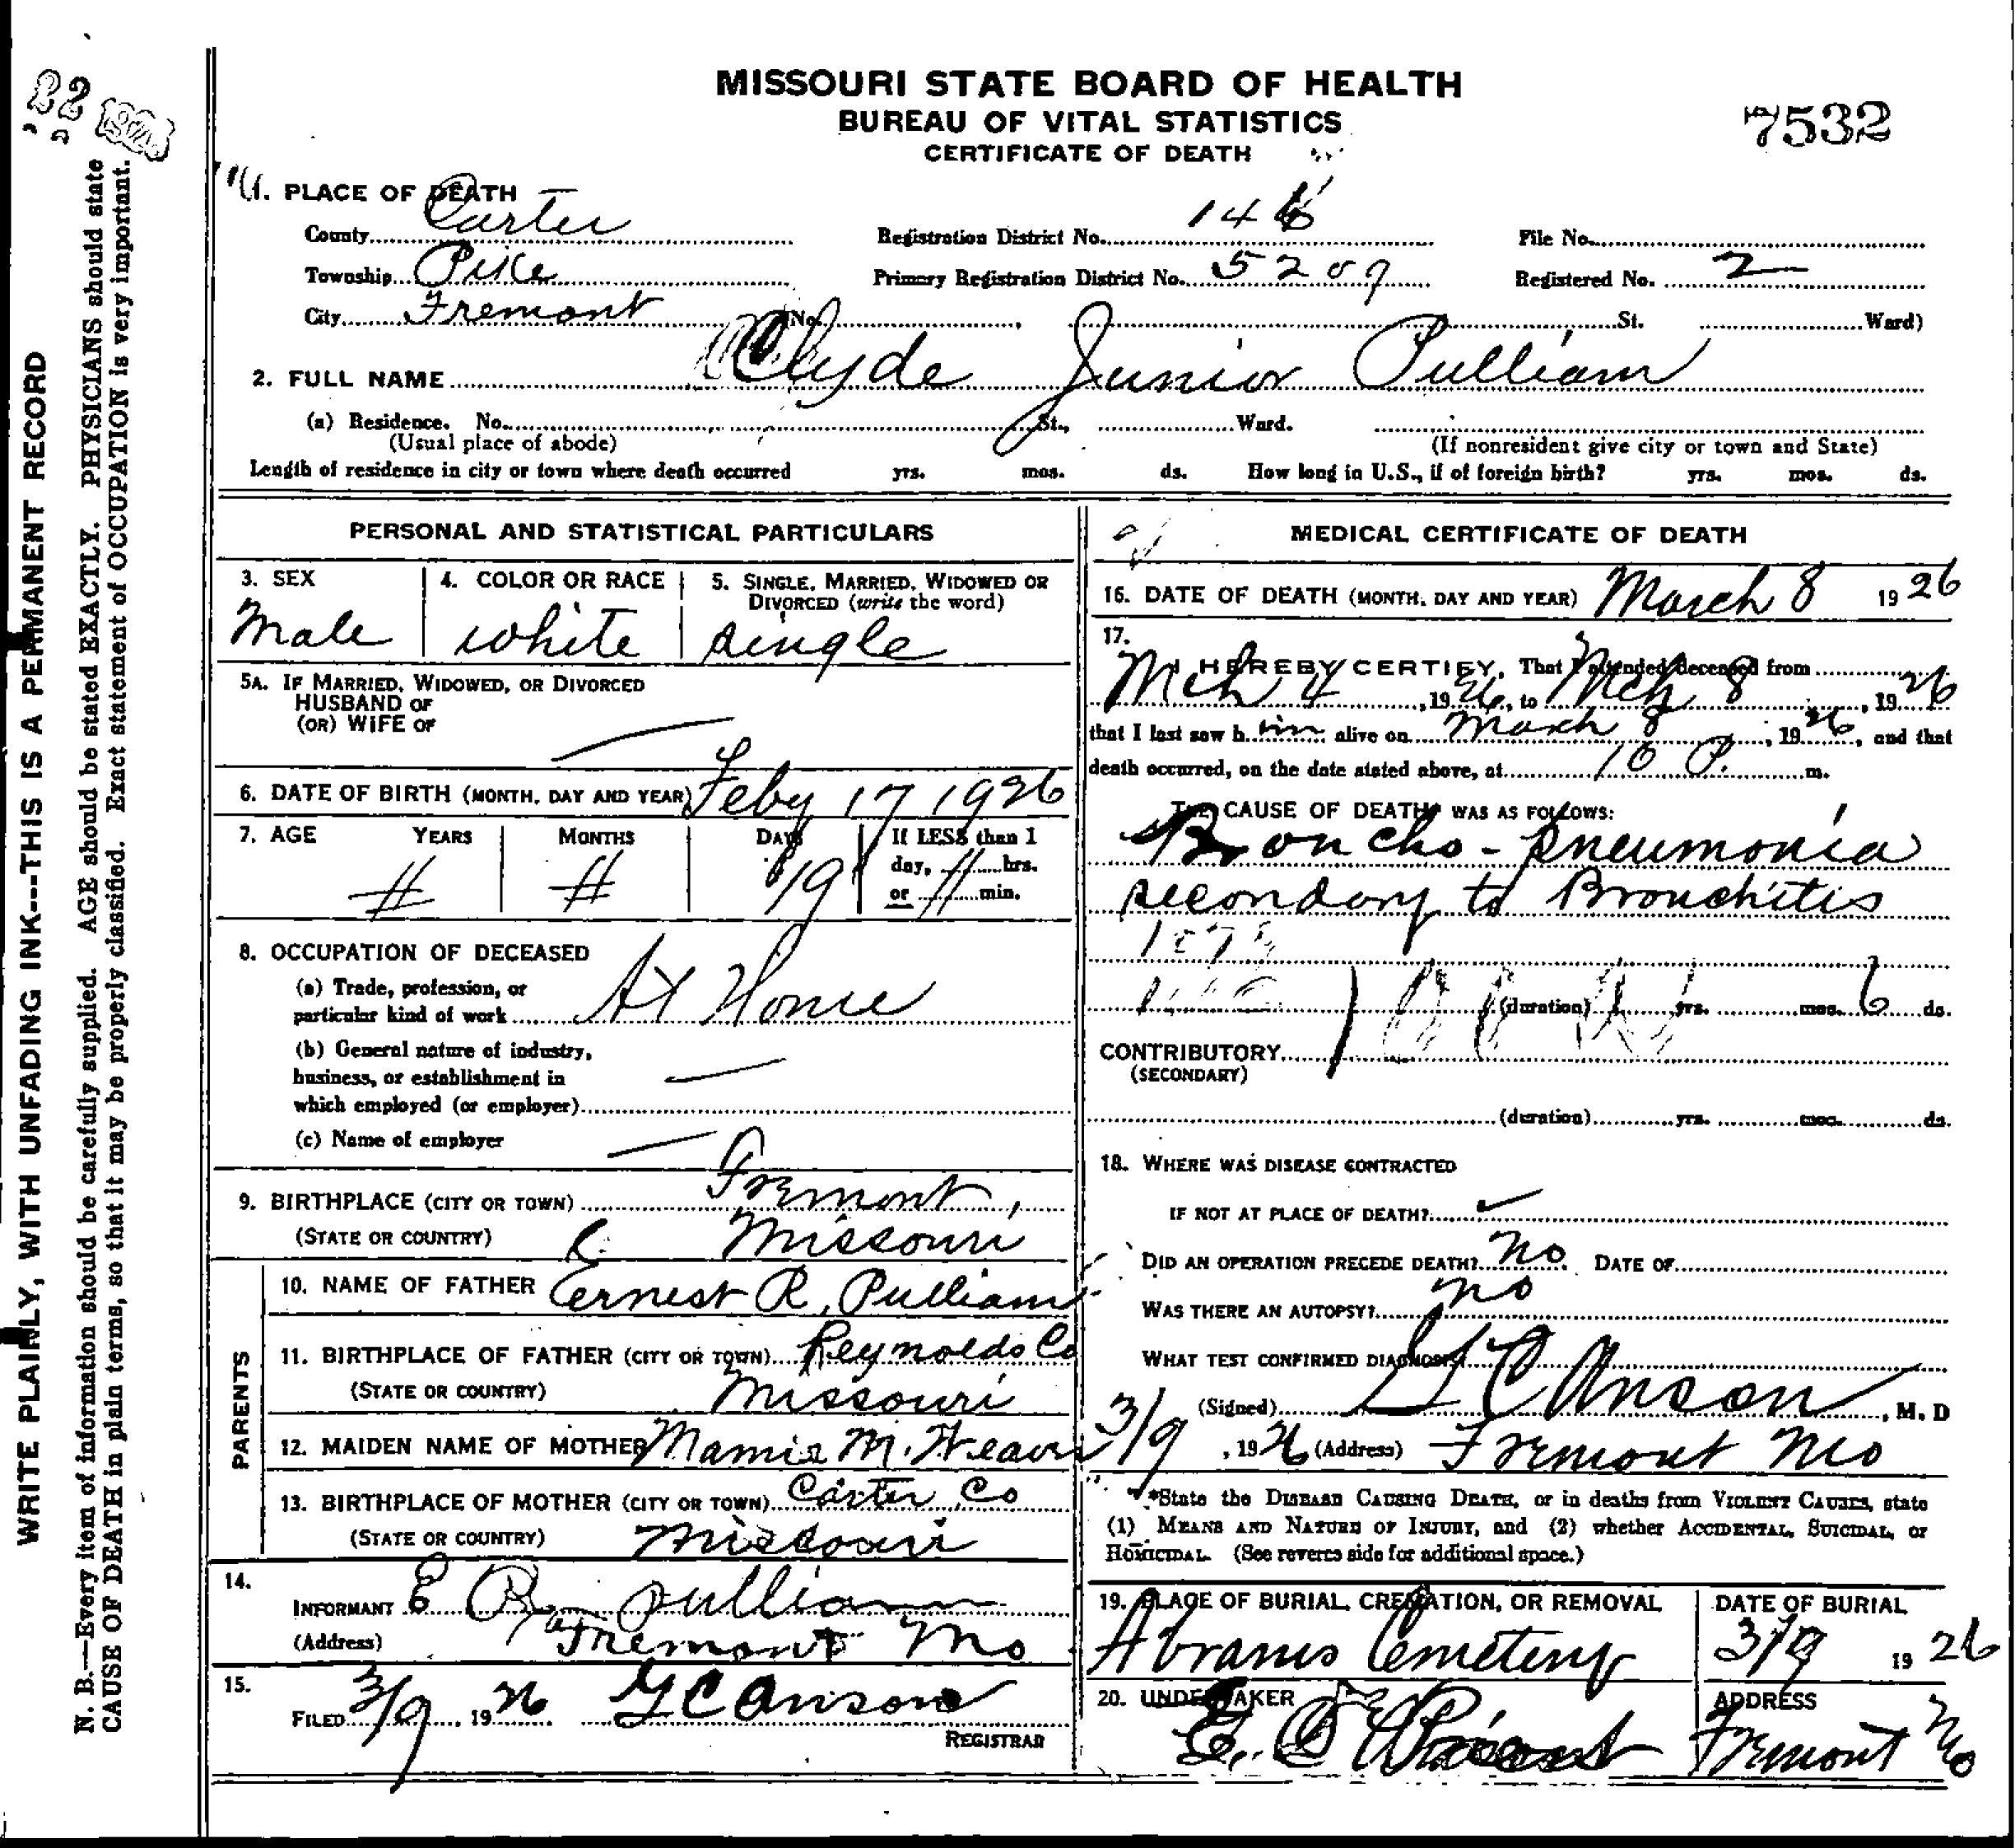 22
MISSOURI STATE BOARD OF HEALTH
BUREAU OF VITAL STATISTICS
CERTIFICATE OF DEATH
7532
WRITE PLAINLY, WITH UNFADING INK---THIS IS A PERMANENT RECORD
N. B.—Every item of information should be carefully supplied. AGE should be stated EXACTLY. PHYSICIANS should state
CAUSE OF DEATH in plain terms, so that it may be properly classified. Exact statement of OCCUPATION is very important.
1. PLACE OF DEATH
County Carter Registration District No. 146 File No.
Township Pike Primary Registration District No. 5209 Registered No. 2
City Fremont No. St. Ward)
2. FULL NAME Clyde Junior Pulliam
(a) Residence. No. St., Ward.
(Usual place of abode) (If nonresident give city or town and State)
Length of residence in city or town where death occurred yrs. mos. ds. How long in U.S., if of foreign birth? yrs. mos. ds.
PERSONAL AND STATISTICAL PARTICULARS
3. SEX 4. COLOR OR RACE 5. SINGLE, MARRIED, WIDOWED OR
DIVORCED (write the word)
Male white single
5A. IF MARRIED, WIDOWED, OR DIVORCED
HUSBAND OF
(OR) WIFE OF
6. DATE OF BIRTH (MONTH, DAY AND YEAR) Feby 17 1926
7. AGE YEARS MONTHS DAYS If LESS than 1
day, 11 hrs.
19
or 11 min.
8. OCCUPATION OF DECEASED
(a) Trade, profession, or
particular kind of work At Home
(b) General nature of industry,
business, or establishment in
which employed (or employer)
(c) Name of employer
9. BIRTHPLACE (CITY OR TOWN) Fremont,
(STATE OR COUNTRY) Missouri
PARENTS
10. NAME OF FATHER Ernest R. Pulliam
11. BIRTHPLACE OF FATHER (CITY OR TOWN) Reynolds Co
(STATE OR COUNTRY) Missouri
12. MAIDEN NAME OF MOTHER Mamie M. Weaver
13. BIRTHPLACE OF MOTHER (CITY OR TOWN) Carter Co
(STATE OR COUNTRY) Missouri
14.
INFORMANT E R Pulliam
(Address) Fremont Mo
15.
FILED 3/9, 1926 G C Anson
REGISTRAR
MEDICAL CERTIFICATE OF DEATH
16. DATE OF DEATH (MONTH, DAY AND YEAR) March 8 1926
17.
I HEREBY CERTIFY, That I attended deceased from
Mch 4, 1926, to Mch 8, 1926
that I last saw him alive on March 8, 1926, and that
death occurred, on the date stated above, at 10 P. m.
THE CAUSE OF DEATH* WAS AS FOLLOWS:
Broncho-pneumonia
secondary to Bronchitis
(duration) yrs. mos. 6 ds.
CONTRIBUTORY
(SECONDARY)
(duration) yrs. mos. ds.
18. WHERE WAS DISEASE CONTRACTED
IF NOT AT PLACE OF DEATH?
DID AN OPERATION PRECEDE DEATH? no. DATE OF
WAS THERE AN AUTOPSY? no
WHAT TEST CONFIRMED DIAGNOSIS?
(Signed) G C Anson, M. D
3/9, 1926 (Address) Fremont Mo
*State the DISEASE CAUSING DEATH, or in deaths from VIOLENT CAUSES, state
(1) MEANS AND NATURE OF INJURY, and (2) whether ACCIDENTAL, SUICIDAL, or
HOMICIDAL. (See reverse side for additional space.)
19. PLACE OF BURIAL, CREMATION, OR REMOVAL DATE OF BURIAL
Abrams Cemetery 3/9 1926
20. UNDERTAKER ADDRESS
Fremont Mo